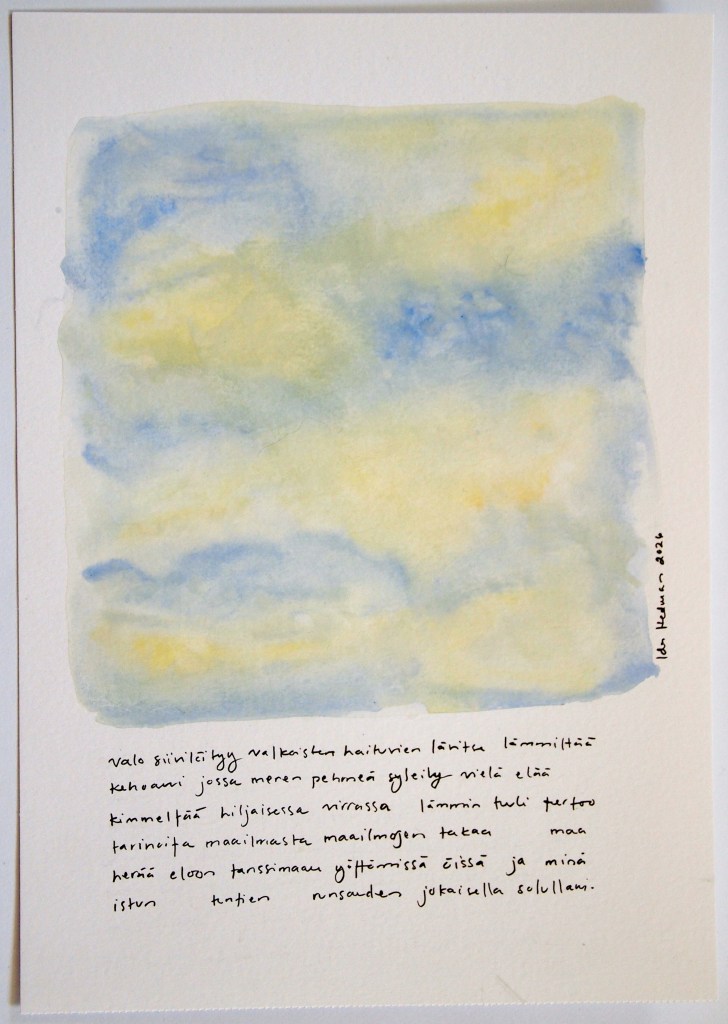 valo siivilöityy valkoisten haituvien lävitse lämmittää
kehoani jossa meren pehmeä syleily vielä elää
kimmeltää hiljaisessa virrassa lämmin tuuli kertoo
tarinoita maailmasta maailmojen takaa maa
herää eloon tanssimaan yöttömissä öissä ja minä
istun tuntien runsauden jokaisella solullani.
Ida Hedman 2026